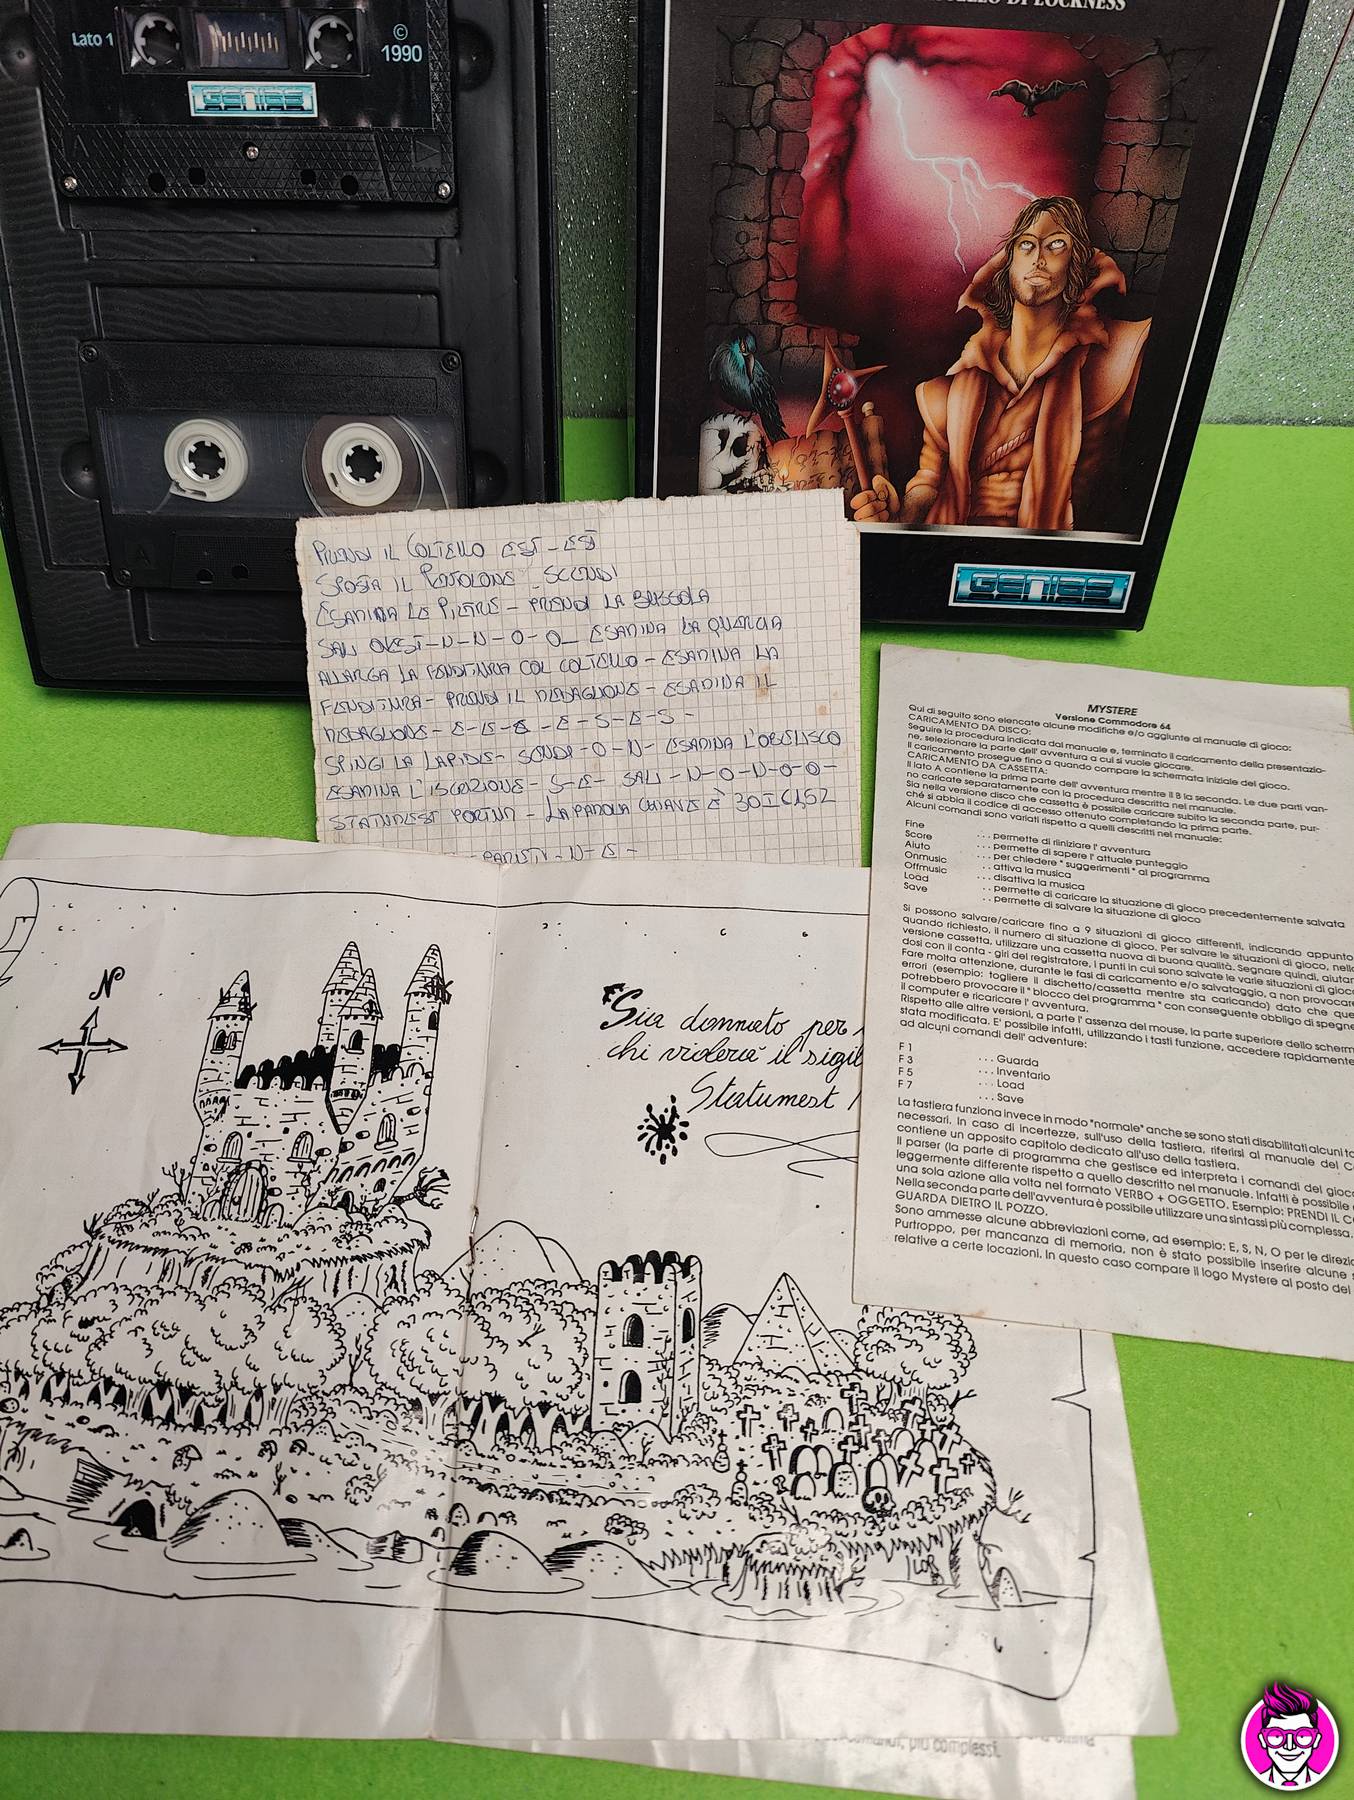 Lato 1
©
1990
GENIAS
DI LOCKNESS
GENIAS
PRENDI IL COLTELLO EST - EST
SPOSTA IL PENTOLONE - SCENDI
ESAMINA LE PIETRE - PRENDI LA BUSSOLA
SALI OVEST-N-N-O-O- ESAMINA LA QUERCIA
ALLARGA LA FENDITURA COL COLTELLO - ESAMINA LA
FENDITURA - PRENDI IL MEDAGLIONE - ESAMINA IL
MEDAGLIONE - E-E-E-E-S-E-S-
SPINGI LA LAPIDE - SCENDI -O-N- ESAMINA L'OBELISCO
ESAMINA L'ISCRIZIONE - S-E- SALI -N-O-N-O-O-
LA PAROLA CHIAVE È
-N-E-
MYSTERE
Versione Commodore 64
Qui di seguito sono elencate alcune modifiche e/o aggiunte al manuale di gioco:
CARICAMENTO DA DISCO:
Seguire la procedura indicata dal manuale e, terminato il caricamento della presentazio-
ne, selezionare la parte dell' avventura a cui si vuole giocare.
Il caricamento prosegue fino a quando compare la schermata iniziale del gioco.
CARICAMENTO DA CASSETTA:
Il lato A contiene la prima parte dell' avventura mentre il B la seconda. Le due parti van-
no caricate separatamente con la procedura descritta nel manuale.
Sia nella versione disco che cassetta è possibile caricare subito la seconda parte, pur-
ché si abbia il codice di accesso ottenuto completando la prima parte.
Alcuni comandi sono variati rispetto a quelli descritti nel manuale:
Fine . . . permette di riiniziare l' avventura
Score . . . permette di sapere l' attuale punteggio
Aiuto . . . per chiedere " suggerimenti " al programma
Onmusic . . attiva la musica
Offmusic . . . disattiva la musica
Load . . permette di caricare la situazione di gioco precedentemente salvata
Save . . permette di salvare la situazione di gioco
Si possono salvare/caricare fino a 9 situazioni di gioco differenti, indicando appunto
quando richiesto, il numero di situazione di gioco. Per salvare le situazioni di gioco, nella
versione cassetta, utilizzare una cassetta nuova di buona qualità. Segnare quindi, aiutan
dosi con il conta - giri del registratore, i punti in cui sono salvate le varie situazioni di gioco
Fare molta attenzione, durante le fasi di caricamento e/o salvataggio, a non provocare
errori (esempio: togliere il dischetto/cassetta mentre sta caricando) dato che que
potrebbero provocare il " blocco del programma " con conseguente obbligo di spegne
il computer e ricaricare l' avventura.
Rispetto alle altre versioni, a parte l' assenza del mouse, la parte superiore dello scherm
stata modificata. E' possibile infatti, utilizzando i tasti funzione, accedere rapidamente
ad alcuni comandi dell' adventure:
F 1 . . . Guarda
F 3 . . . Inventario
F 5 . . . Load
F 7 . . . Save
La tastiera funziona invece in modo "normale" anche se sono stati disabilitati alcuni ta
necessari. In caso di incertezze, sull'uso della tastiera, riferirsi al manuale del C
contiene un apposito capitolo dedicato all'uso della tastiera.
Il parser (la parte di programma che gestisce ed interpreta i comandi del gioco
leggermente differente rispetto a quello descritto nel manuale. Infatti è possibile
una sola azione alla volta nel formato VERBO + OGGETTO. Esempio: PRENDI IL C
Nella seconda parte dell'avventura è possibile utilizzare una sintassi più complessa.
GUARDA DIETRO IL POZZO.
Sono ammesse alcune abbreviazioni come, ad esempio: E, S, N, O per le direzio
Purtroppo, per mancanza di memoria, non è stato possibile inserire alcune s
relative a certe locazioni. In questo caso compare il logo Mystere al posto del
N
Sia dannato per
chi violerà il sigil
Statumest
più complessi.